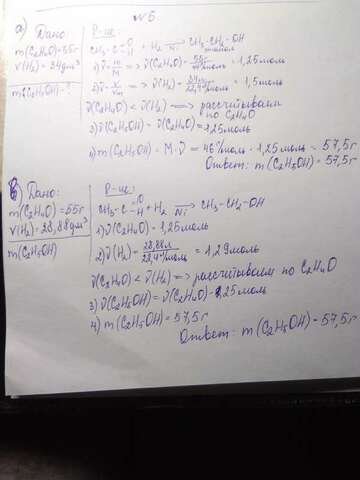 №5
а) Дано:
m(C₂H₄O)=55г
V(H₂)=34дм³
m(C₂H₅OH)-?
Р-ие:
CH₃-C=O H + H₂ →Ni CH₃-CH₂-OH
этанол
1) ν=m/M => ν(C₂H₄O)=55г/44г/моль=1,25моль
2) ν=V/Vm => ν(H₂)=34дм³/22,4дм³/моль=1,5моль
ν(C₂H₄O) < ν(H₂) => рассчитываем
по C₂H₄O
3) ν(C₂H₅OH)=ν(C₂H₄O)=1,25моль
4) m(C₂H₅OH)=M·ν = 46г/моль·1,25моль = 57,5г
Ответ: m(C₂H₅OH)=57,5г
б) Дано:
m(C₂H₄O)=55г
V(H₂)=28,88дм³
m(C₂H₅OH)
Р-ие:
CH₃-C=O H + H₂ →Ni CH₃-CH₂-OH
1) ν(C₂H₄O)=1,25моль
2) ν(H₂)=28,88л/22,4л/моль = 1,29моль
ν(C₂H₄O) < ν(H₂) => рассчитываем по C₂H₄O
3) ν(C₂H₅OH)=ν(C₂H₄O)=1,25моль
4) m(C₂H₅OH)=57,5г
Ответ: m(C₂H₅OH)=57,5г